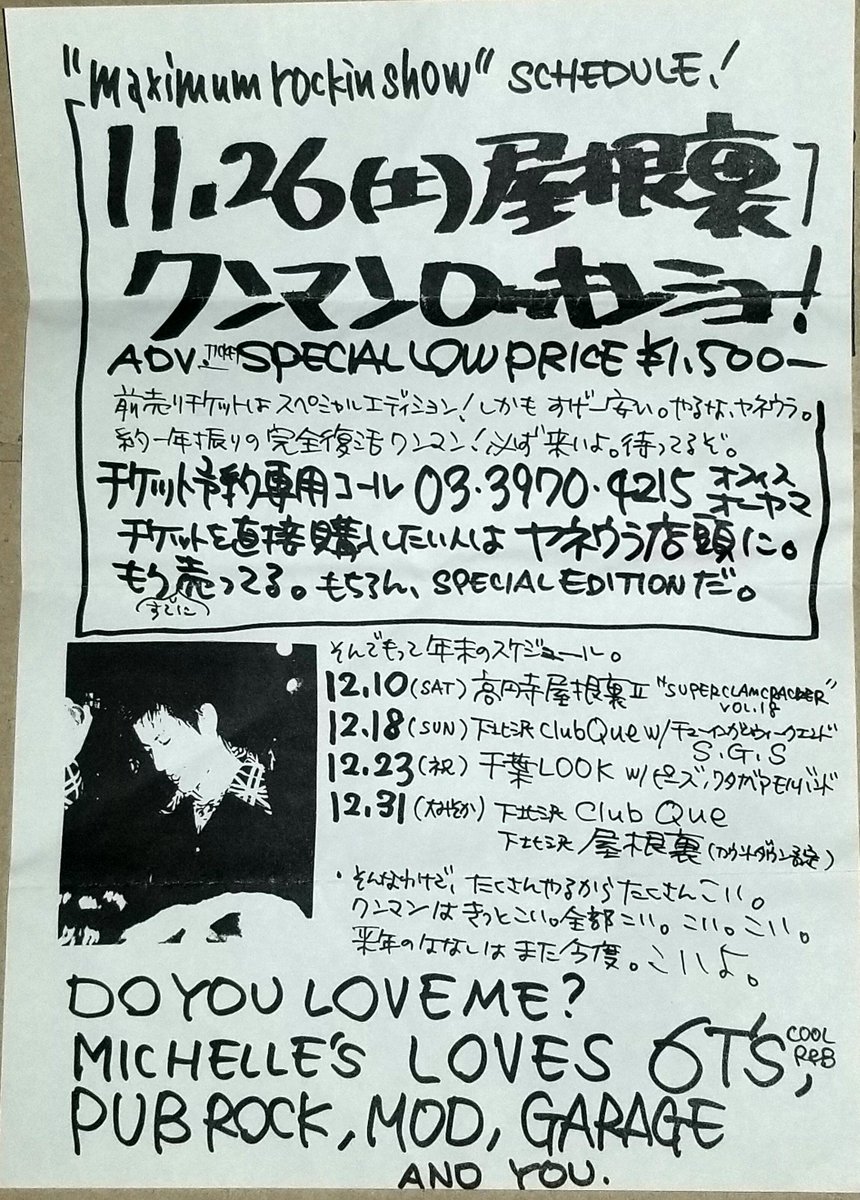 "maximum rockin show" SCHEDULE!
11.26(土)屋根裏
ワンマンロッキンショー!
ADV. TICKET SPECIAL LOW PRICE ¥1,500-
前売りチケットはスペシャルエディション!しかもすげー安い。やるな、ヤネウラ。
約一年振りの完全復活ワンマン!必ず来いよ。待ってるぞ。
チケット予約専用コール 03.3970.4215 オフィスオーヤマ
チケットを直接購入したい人はヤネウラ店頭に。
もう売ってる。もちろん、SPECIAL EDITIONだ。
(すでに)
そんでもって年末のスケジュール。
12.10(SAT)高円寺屋根裏II "SUPER CLAMCRACKER" VOL.18
12.18(SUN)下北沢 Club Que w/チューインガムウィークエンド
S.G.S
12.23(祝)千葉LOOK w/ピーズ,ワタナベアモルバンド
12.31(大みそか)下北沢 Club Que
下北沢 屋根裏(カウントダウン予定)
・そんなわけで、たくさんやるからたくさんこい。
ワンマンはきっとこい。全部こい。こい。こい。
来年のはなしはまた今度。こいよ。
DO YOU LOVE ME?
MICHELLE'S LOVES 6T'S, COOL R&B
PUB ROCK, MOD, GARAGE
AND YOU.